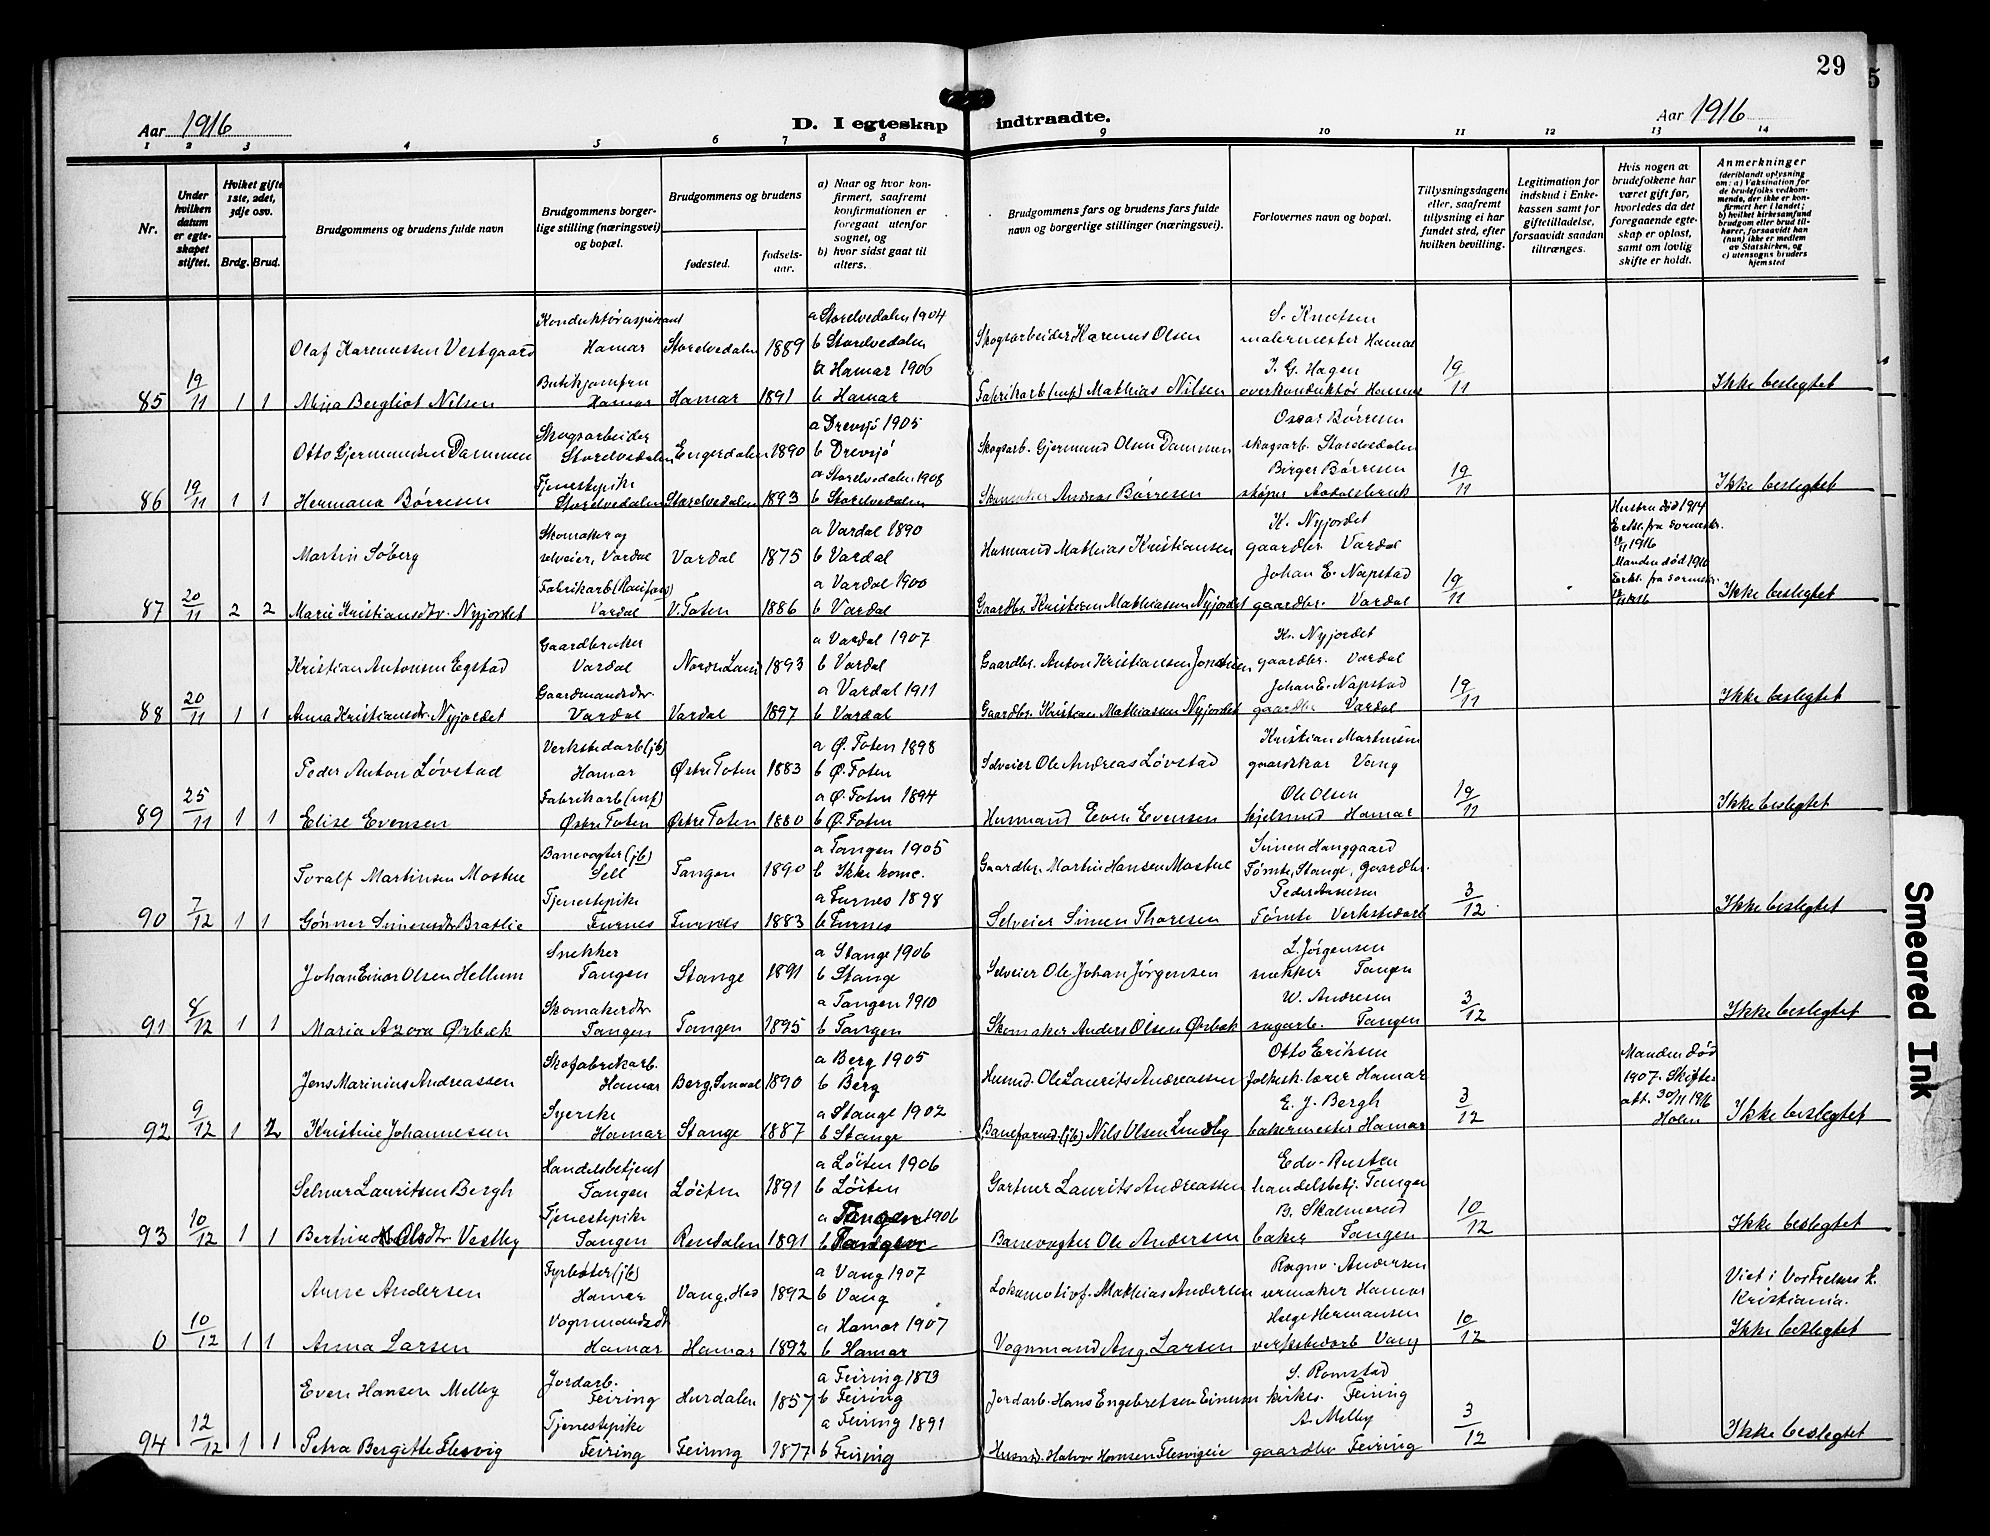 29
5
Aar 1916
D. I egteskap indtraadte.
Aar 1916
1 2 3 4 5 6 7 8 9 10 11 12 13 14
Nr.
Under hvilken datum er egteskapet stiftet.
Hvilket gifte 1ste, 2det, 3dje osv.
Brdg. Brud.
Brudgommens og brudens fulde navn
Brudgommens borgerlige stilling (næringsvei) og bopæl.
Brudgommens og brudens
fødested.
fødselsaar.
a) Naar og hvor konfirmert, saafremt konfirmationen er foregaat utenfor sognet, og
b) hvor sidst gaat til alters.
Brudgommens fars og brudens fars fulde navn og borgerlige stillinger (næringsvei).
Forlovernes navn og bopæl.
Tillysningsdagene eller, saafremt tillysning ei har fundet sted, efter hvilken bevilling.
Legitimation for indskud i Enkekassen samt for giftetilladelse, forsaavidt saadan tiltrænges.
Hvis nogen av brudefolkene har været gift før, hvorledes da det foregaaende egteskap er opløst, samt om lovlig skifte er holdt.
Anmerkninger
(deriblandt oplysning om: a) Vaksination for de brudefolks vedkommende, der ikke er konfirmert her i landet; b) hvilket kirkesamfund brudgom eller brud tilhører, forsaavidt han (hun) ikke er medlem av Statskirken, og c) utensogns bruders hjemsted
Konduktøraspirant a Storelvedalen 1904 S. Knutsen
Olaf Karenussen Vestgaard Hamar Storelvedalen 1889 b Storelvedalen Skogsarbeider Karenus Olsen malermester Hamar
Butikjomfru a Hamar 1906 I. G. Hagen
85 19/11 1 1 Bergliot Nilsen Hamar Hamar 1891 b Hamar Fabrikarb (unf) Mathias Nilsen overkonduktør Hamar 19/11 Ikke beslegtet
Skogsarbeider a Drevsjø 1905 Oscar Børresen
Otto Gjermundsen Dammen Storelvedalen Engerdalen 1890 b Drevsjø Skogsarb. Gjermund Olsen Dammen skogsarb. Storelvedalen
Tjenestepike a Storelvedalen 1908 Birger Børresen
86 19/11 1 1 Hermana Børresen Storelvedalen Storelvedalen 1893 b Storelvedalen Skomaker Andreas Børresen Aadalsbruk 19/11 Ikke beslegtet
Skomaker og a Vardal 1890 K. Nyjordet Hustru død 1914
Martin Søberg selveier, Vardal Vardal 1875 b Vardal Husmand Mathias Kristiansen gaardbr. Vardal Erkl. fra sorenskr. 1916
Fabrikarb (Raufoss) a Vardal 1900 Johan E. Napstad Manden død 1916
87 20/11 2 2 Marie Kristiansdtr. Nyjordet Vardal V. Toten 1886 b Vardal Gaardbr. Kristian Mathiassen Nyjordet gaardbr. Vardal 19/11 Erkl. fra sorenskr. Ikke beslegtet
Gaardbruker a Vardal 1907 K. Nyjordet
Kristian Antonsen Egstad Vardal Nordre Land 1893 b Vardal Gaardbr. Anton Kristiansen gaardbr. Vardal
Gaardmandsdtr a Vardal 1911 Johan E. Napstad
88 20/11 1 1 Anna Kristiansdtr. Nyjordet Vardal Vardal 1897 b Vardal Gaardbr. Kristian Mathiassen Nyjordet gaardbr Vardal 19/11 Ikke beslegtet
Verkstedarb (jb) a Ø. Toten 1898 Kristian Martinsen
Peder Anton Løvstad Hamar Østre Toten 1883 b Ø. Toten Selveier Ole Andreas Løvstad gaardskar Vang
Fabrikarb (unf) a Ø. Toten 1894 Ole Olsen
89 25/11 1 1 Elise Evensen Østre Toten Østre Toten 1880 b Ø. Toten Husmand Even Evensen kjelsmed Hamar 19/11 Ikke beslegtet
Banevogter (jb) a Tangen 1905 Simen Hanggaard
Toralf Martinsen Mostue Sell Tangen 1890 b Ikke kome. Gaardbr. Martin Hansen Mostue Tømte, Stange, Gaardbr.
Tjenestepike a Furnes 1898 Peder
90 7/12 1 1 Gønner Simensdtr Bratlie Furnes Furnes 1883 b Furnes Selveier Simen Thoresen Tømte Verkstedarb 3/12 Ikke beslegtet
Snekker a Stange 1906 L. Jørgensen
Johan Einar Olsen Hellum Tangen Stange 1891 b Stange Selveier Ole Johan Jørgensen snekker Tangen
Skomakerdtr a Tangen 1910 W. Andresen
91 8/12 1 1 Maria Azora Ørbæk Tangen Tangen 1895 b Tangen Skomaker Anders Olsen Ørbæk sagarb. Tangen 3/12 Ikke beslegtet
Skofabrikarb. a Berg 1905 Otto Eriksen Manden død
Jens Marinius Andreassen Hamar Berg, Smaal 1890 b Berg Husmd. Ole Laurits Andreassen folkesk. lærer Hamar 1907. Skifte-
Syerske a Stange 1902 E. J. Bergh att. 30/11 1916
92 9/12 1 2 Kristine Johannessen Hamar Stange 1887 b Stange Baneformd (jb) Nils Olsen Lundby bakermester Hamar 3/12 Ikke beslegtet
Handelsbetjent a Løiten 1906 Edv. Rusten
Selmer Lauritsen Bergh Tangen Løiten 1891 b Løiten Gartner Laurits Andreassen handelsbetj. Tangen
Tjenestepike a Tangen 1906 B. Skalmerud
93 10/12 1 1 Bertine Olsdtr Vestby Tangen Rendalen 1891 b Tangen Banevogter Ole Andersen baker Tangen 10/12 Ikke beslegtet
Fyrbøter (jb) a Vang 1907 Ragnv. Andersen Viet i Vor Frelsers k.
Arne Andersen Hamar Vang, Hed 1892 b Vang Lokomotivf. Mathias Andersen urmaker Hamar Kristiania.
Vognmandsdtr a Hamar 1907 Helge Hermansen
0 10/12 1 1 Anna Larsen Hamar Hamar 1892 b Hamar Vognmand Aug. Larsen verkstedarb Vang 10/12 Ikke beslegtet
Jordarb. a Feiring 1873 S. Romstad
Even Hansen Melby Feiring Hurdalen 1857 b Feiring Jordarb. Hans Engebretsen kirkes. Feiring
Tjenestepike a Feiring 1891 A. Melby
94 12/12 1 1 Petra Bergitte Flesvig Feiring Feiring 1877 b Feiring Husmd. Halvor Hansen Flesvigeie gaardbr Feiring 3/12 Ikke beslegtet
Smeared Ink